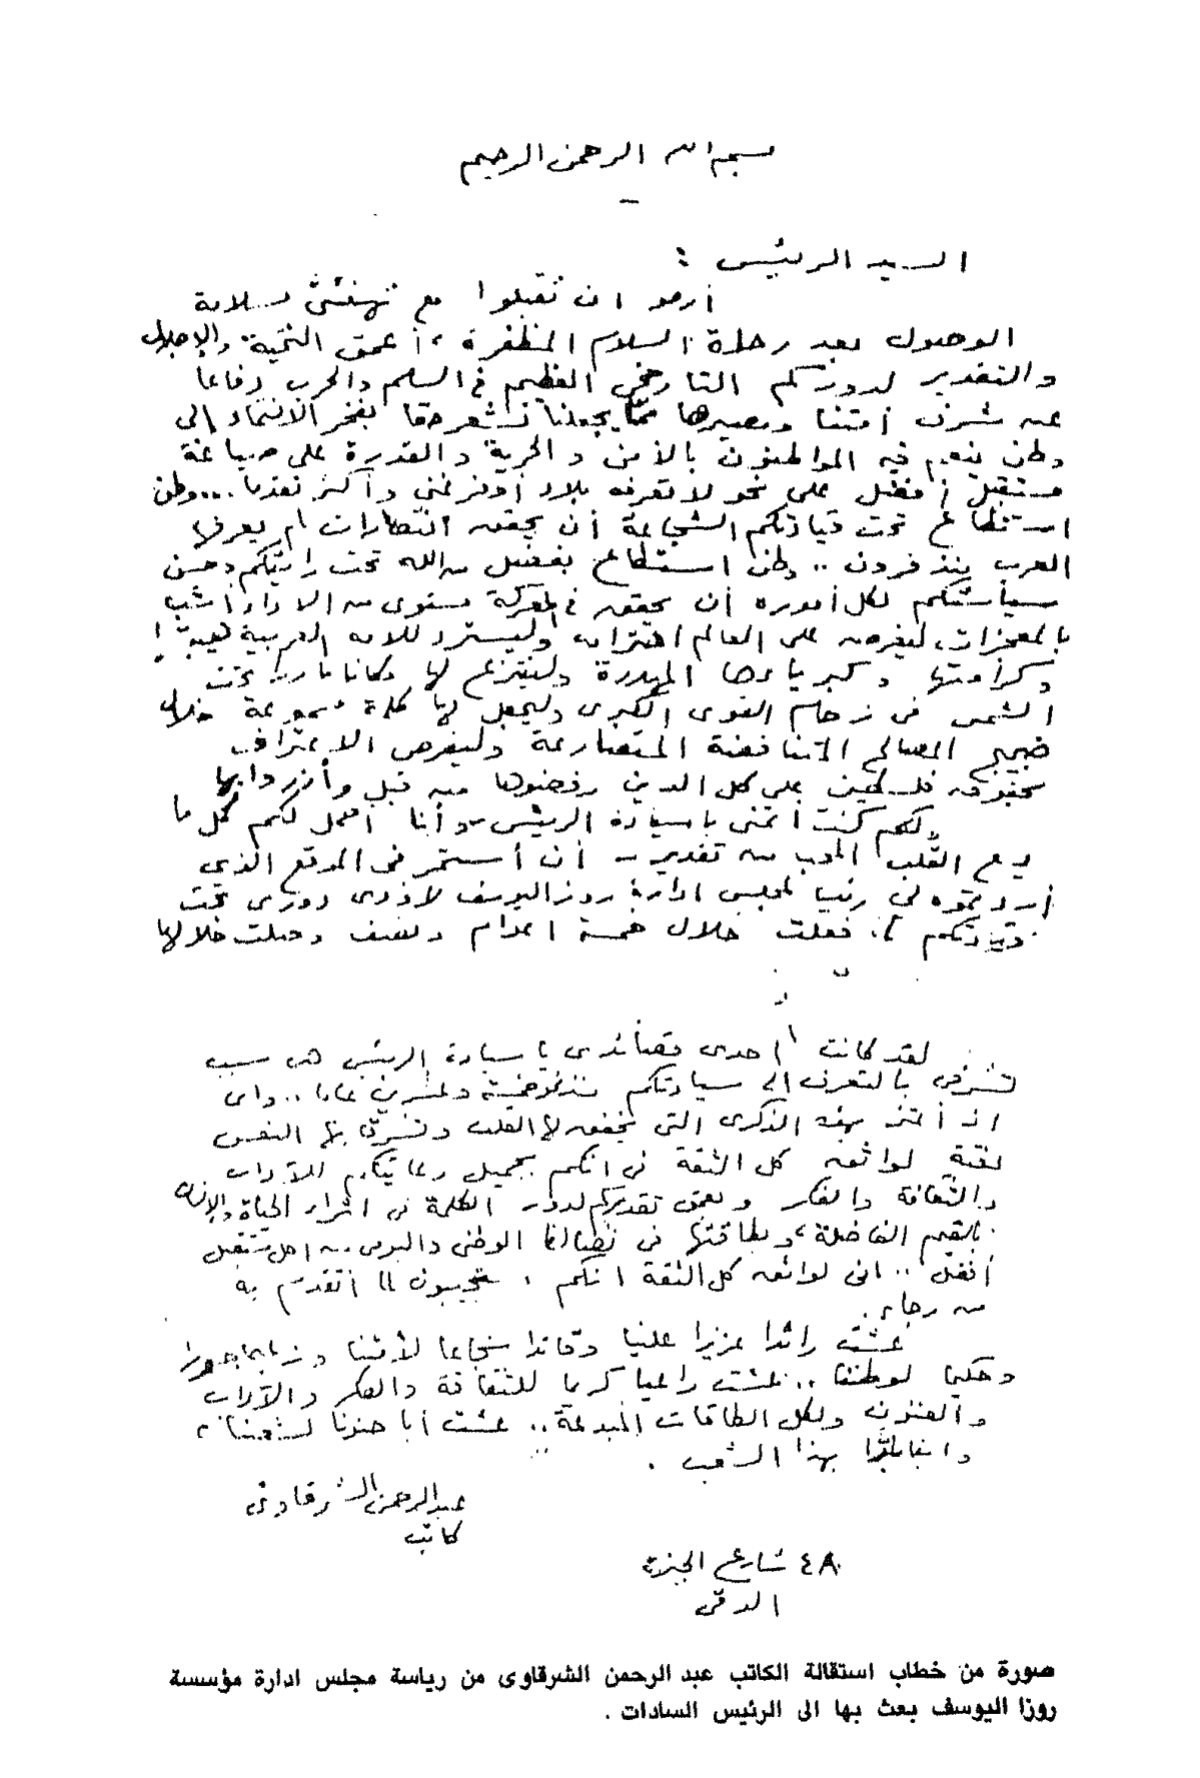 بسم الله الرحمن الرحيم
السيد الرئيس :
أرجو ان تقبلوا مع تهنئتى بسلامة
الوصول بعد رحلة السلام المظفرة ، أعمق التحية والإجلال
والتقدير لدوركم التاريخى العظيم فى السلم والحرب دفاعا
عن شرف أمتنا ومصيرها مما يجعلنا نشعر حقا بفخر الانتماء الى
وطن ينعم فيه المواطنون بالأمن والحرية والقدرة على صياغة
مستقبل أفضل على نحو لا تعرفه بلاد أوفر غنى وأكثر تقدما ... وطن
استطاع تحت قيادتكم الشجاعة أن يحقق انتصارات لم يعرفها
العرب منذ قرون .. وطن استطاع بفضل من الله تحت رايتكم وحسن
سياستكم لكل أموره أن يحقق فى المعركة مستوى من الاداء أشبه
بالمعجزات ، ليفرض على العالم احترامه وليسترد للامة العربية هيبتها
وكرامتها وكبرياءها المهدرة ولينتزع لها مكانا بارزا تحت
الشمس فى زحام القوى الكبرى وليجعل لها كلمة مسموعة خلال
ضجيج المصالح المتناقضة المتصارعة وليفرض الاعتراف
بحقوق فلسطين على كل الذين رفضوها من قبل وأزروا بها
ولكم كنت أتمنى يا سيادة الرئيس وأنا احمل لكم كل ما
يسع القلب المحب من تقدير أن أستمر فى الموقع الذى
أردتموه لى رئيسا لمجلس ادارة روز اليوسف لاؤدى دورى تحت
قيادتكم كما فعلت خلال خمسة اعوام ونصف وحملت خلالها
لقد كانت احدى قصائدى يا سيادة الرئيس هى سبب
تشرفى بالتعرف الى سيادتكم منذ نحو خمسة وعشرين عاما .. وانى
اذ أعتز بهذه الذكرى التى يخفق لها القلب وتشرق بها النفس
لواثق كل الثقة فى انكم بجميل رعايتكم للآداب
والثقافة والفكر وبعمق تقديركم لدور الكلمة فى اثراء الحياة والإنسان
بالقيم الفاضلة ، وبطاقتها فى نضالنا الوطنى واليومى من اجل مستقبل
أفضل .. انى لواثق كل الثقة انكم ستجيبون لما اتقدم به
من رجاء .
عشت رائدا عزيزا علينا وقائدا شجاعا لأمتنا وزعيما جسورا
وحكيما لوطننا .. عشت راعيا كريما للثقافة والفكر والآداب
والفنون ولكل الطاقات المبدعة .. عشت أبا حنونا لشعبنا ،
وابنا بارا بهذا الشعب .
عبد الرحمن الشرقاوى
كاتب
٤٨ شارع الجيزة
الدقى
صورة من خطاب استقالة الكاتب عبد الرحمن الشرقاوى من رياسة مجلس ادارة مؤسسة
روزا اليوسف بعث بها الى الرئيس السادات .